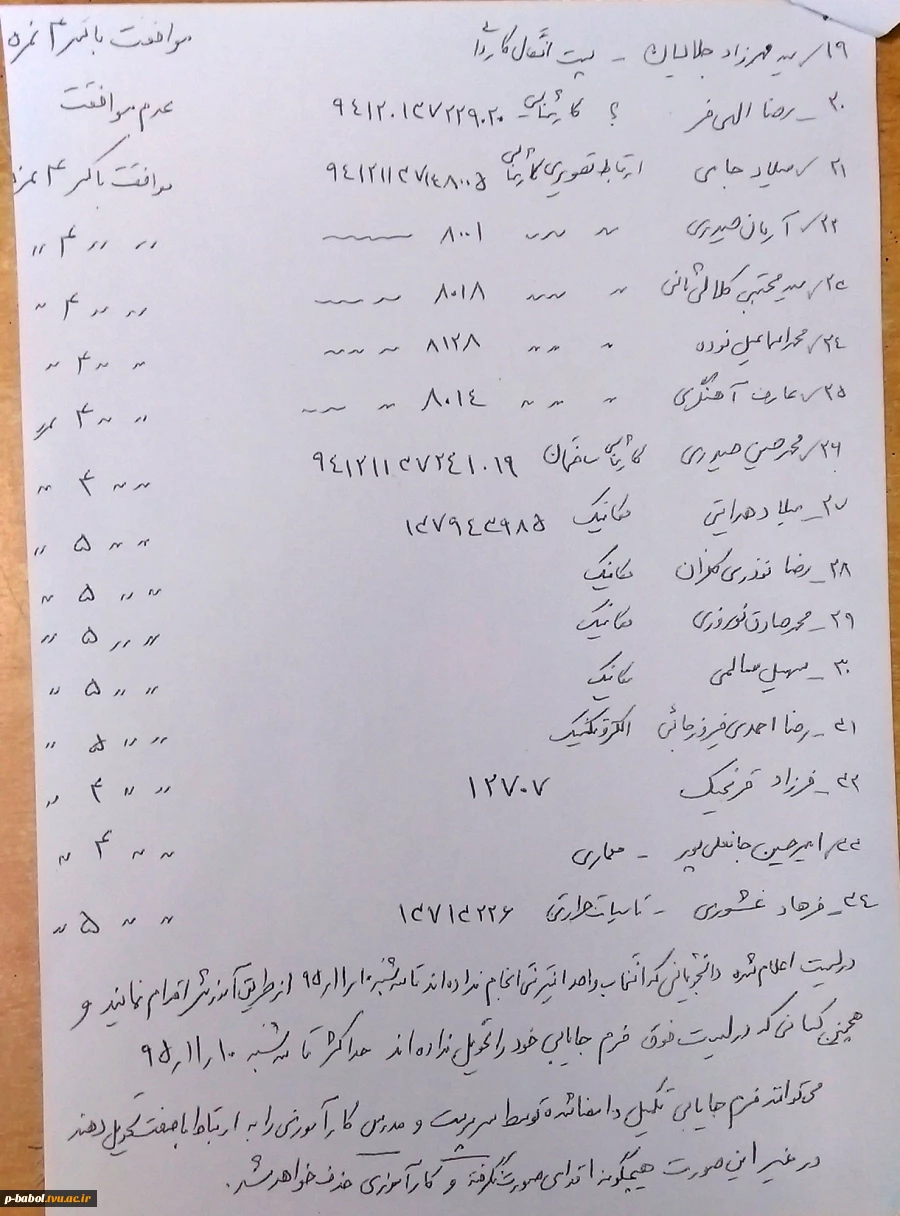 ۱۹/ سید مهرزاد جلالیان - پست انتقال کاردانی موافقت با کسر ۴ نمره
۲۰_ رضا الهی فر ؟ کارشناسی ۹۴۱۲۰۱۳۷۲۲۹۰۲۰ عدم موافقت
۲۱/ میلاد حاجی ارتباط تصویری کارشناسی ۹۴۱۲۱۱۳۷۱۴۸۰۰۵ موافقت با کسر ۴ نمره
۲۲/ آرمان حیدری ~ ~ ۸۰۰۱ ~ 〃 〃 ۴ 〃
۲۳/ سید مجتبی کلالی ثانی ~ ~ ۸۰۱۸ ~ ~ 〃 〃 ۴ 〃
۲۴/ محمد اسماعیل نوده ~ ~ ۸۱۲۸ ~ ~ 〃 〃 ۴ 〃
۲۵/ عارف آهنگری ~ ~ ~ ۸۰۱۴ ~ ~ 〃 〃 ۴ نمره
۲۶/ محمد حسین حیدری کارشناسی ساختمان ۹۴۱۲۱۱۳۷۲۴۱۰۱۹ 〃 〃 ۴ 〃
۲۷_ میلاد هدایتی مکانیک ۱۳۷۹۴۳۹۸۵ 〃 〃 ۵ 〃
۲۸_ رضا نوذری مکانیک 〃 〃 ۵ 〃
۲۹_ محمد صادق نوروزی مکانیک 〃 〃 ۵ 〃
۳۰_ سهیل سالمی مکانیک 〃 〃 ۵ 〃
۳۱_ رضا احمدی فیروزجائی الکتروتکنیک 〃 〃 ۵ 〃
۳۲_ فرزاد قرنجیک ۱۲۷۰۷ 〃 〃 ۴ 〃
۳۳/ امیرحسین جانعلی پور - معماری 〃 〃 ۴ 〃
۳۴_ فرهاد غشوری - تاسیسات حرارتی ۱۳۷۱۳۲۲۶ 〃 〃 ۵ 〃
در لیست اعلام شده دانشجویانی که انتخاب واحد اینترنتی انجام نداده اند تا سه شنبه ۹۵/۱۱/۱۰ از طریق آموزش اقدام نمایند و
همچنین کسانی که در لیست فوق فرم جایابی خود را تحویل نداده اند حداکثر تا سه شنبه ۹۵/۱۱/۱۰
می توانند فرم جایابی تکمیل و امضا شده توسط سرپرست و مدرس کارآموزی را به ارتباط با صنعت تحویل دهند
در غیر این صورت هیچگونه اقدامی صورت نگرفته و کارآموزی حذف خواهد شد.
p-babol.tvu.ac.ir